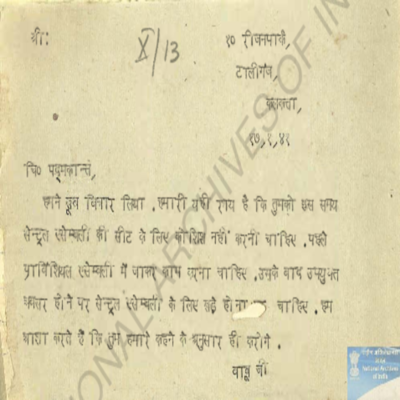 श्री:
X/13
१० रीजनपार्क,
टालीगंज,
कलकत्ता,
१७,९,४१
चि० पद्मकान्त,
हमने खूब विचार लिया . हमारी यही राय है कि तुमको इस समय
सेन्ट्रल एसेम्बली की सीट के लिए कोशिश नहीं करनी चाहिए . पहले
प्राविंशियल एसेम्बली में जाकर काम करना चाहिए . उसके बाद उपयुक्त
अवसर होने पर सेन्ट्रल एसेम्बली के लिए खड़े होना चाहिए . हम
आशा करते हैं कि तुम हमारे कहने के अनुसार ही करोगे .
बाबू जी
NATIONAL ARCHIVES OF IN